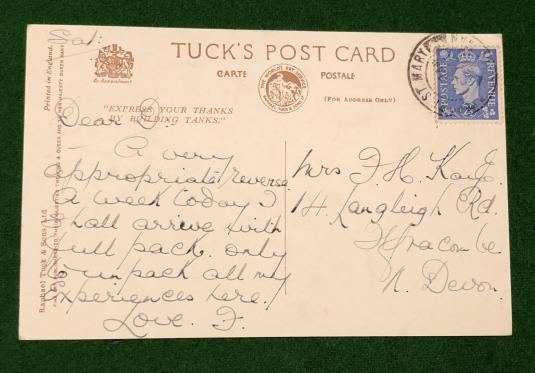 Sat:
TUCK'S POST CARD
CARTE POSTALE
(FOR ADDRESS ONLY)
By Appointment
THE WORLD'S ART SERVICE
"EXPRESS YOUR THANKS
BY BUILDING TANKS."
Printed in England.
Raphael Tuck & Sons, Ltd
POSTAGE REVENUE
ST MARY
Dear
- A very
appropriate reverse
a week today I
shall arrive with
full pack. only
to unpack all my
experiences here!
Love. F.
Mrs F. H. Kaye
14. Langleigh Rd.
Ilfracombe
N. Devon.